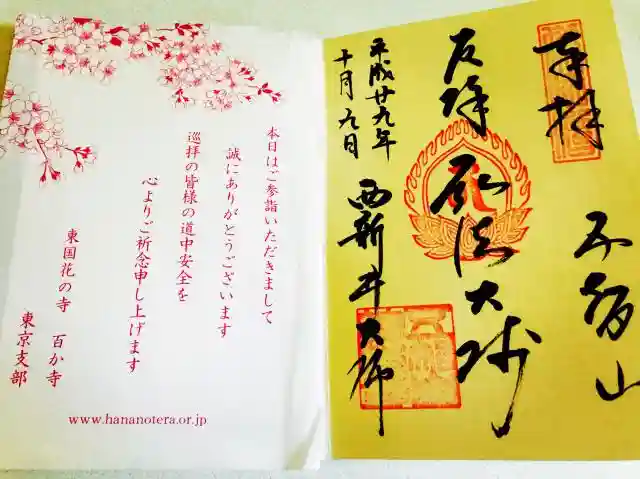 奉拝
五智山
厄除 弘法大師
平成廿九年
十月九日
西新井大師
本日はご参詣いただきまして
誠にありがとうございます
巡拝の皆様の道中安全を
心よりご祈念申し上げます
東国花の寺 百か寺
東京支部
www.hananotera.or.jp